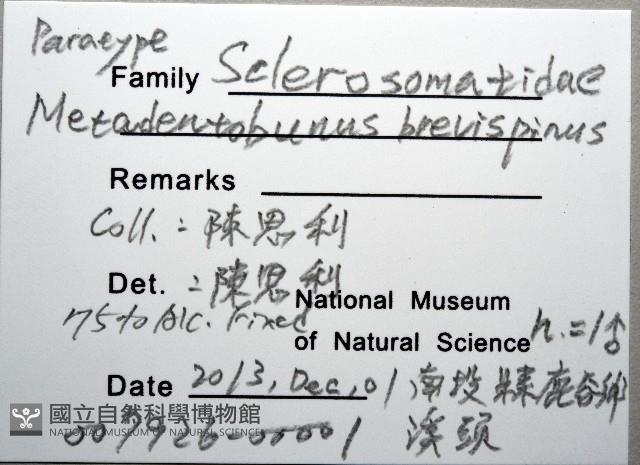 Paratype
Family Sclerosomatidae
Metadentobunus brevispinus
Remarks
Coll.：陳思利
Det.：陳思利
75% Alc. Fixed
National Museum
of Natural Science n.=1♂
Date 2013, Dec, 01 南投縣鹿谷鄉
溪頭
國立自然科學博物館
NATIONAL MUSEUM OF NATURAL SCIENCE